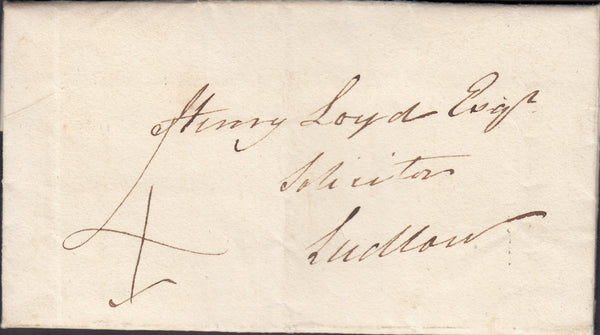 Henry Loyd Esqr
Solicitor
Ludlow
4